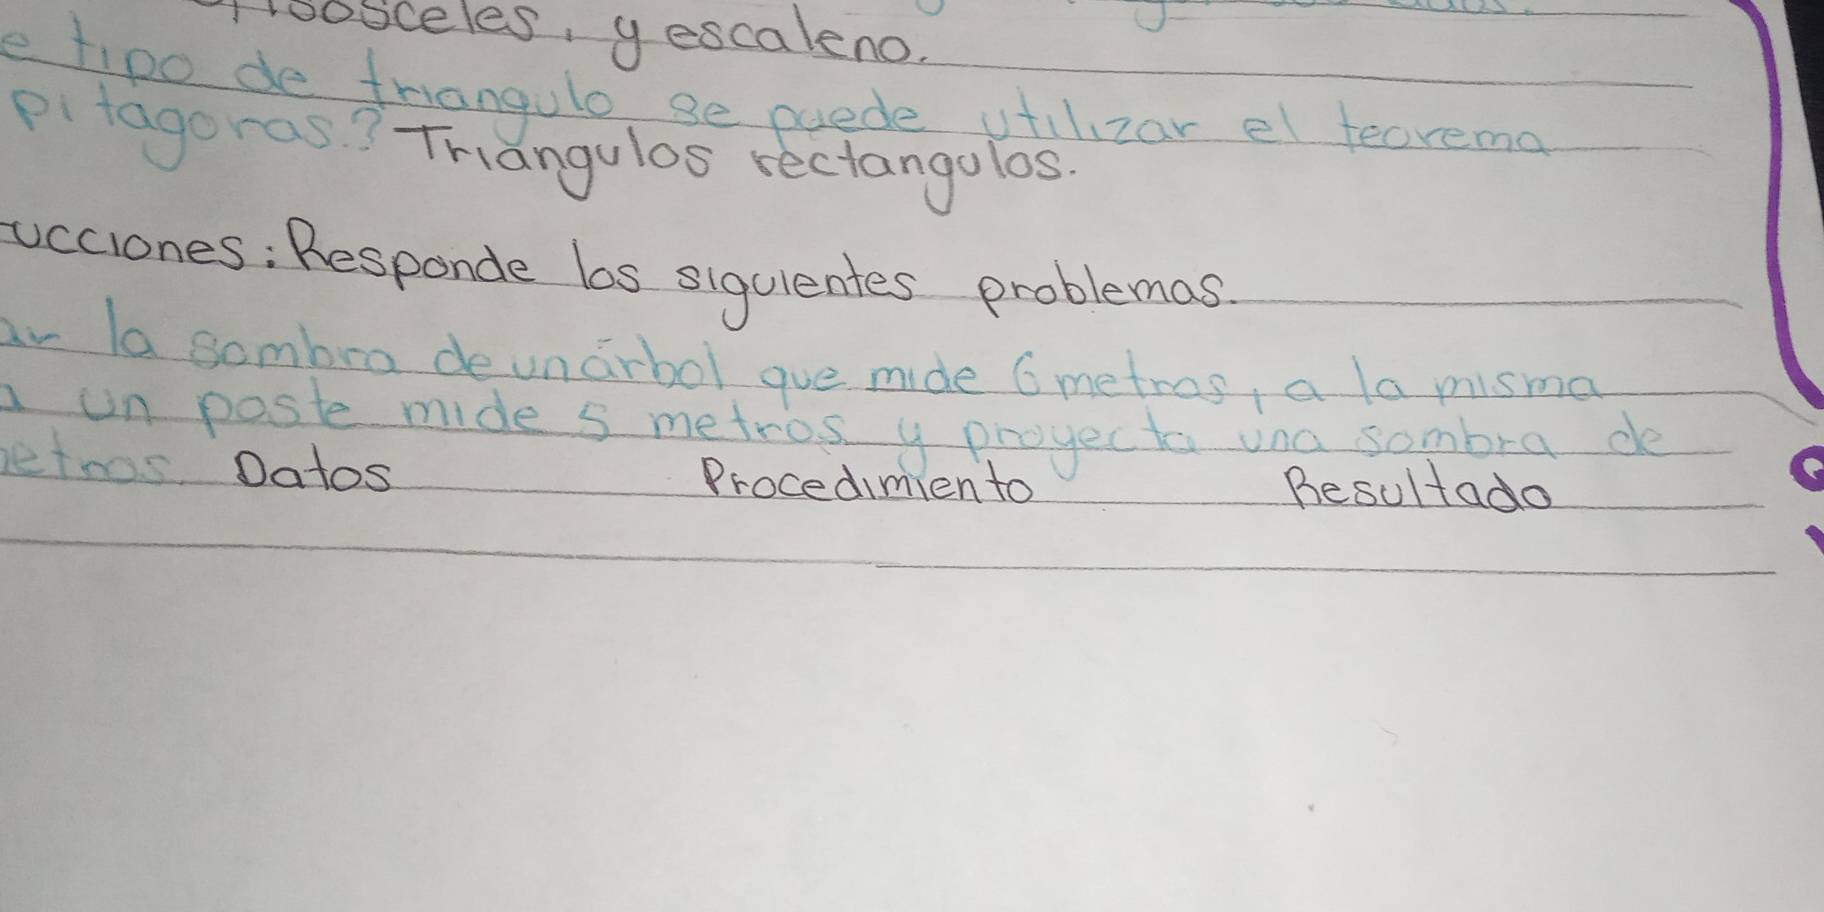 isosceles, y escaleno.
e tipo de triangulo se puede utilizar el teorema
pitagoras? Triangulos rectangulos.
ucciones: Responde los siguientes problemas.
ar la sombra de un árbol que mide 6 metros, a la misma
a un poste mide 5 metros y proyecta una sombra de
etros. Datos Procedimiento Resultado